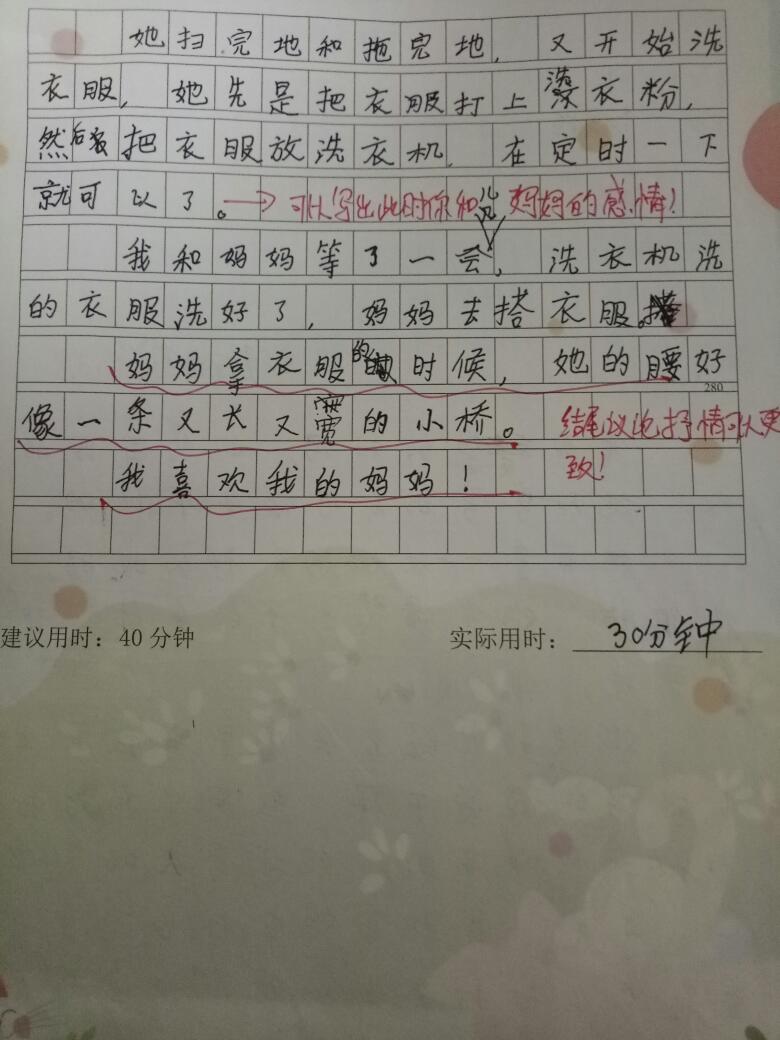 她扫完地和拖完地，又开始洗
衣服，她先是把衣服打上洗衣粉，
然后把衣服放洗衣机，在定时一下
就可以了。→可以写出此时你和妈妈的感情！
我和妈妈等了一会儿，洗衣机洗
的衣服洗好了，妈妈去搭衣服。
妈妈拿衣服的时候，她的腰好
280
像一条又长又宽的小桥。结尾议论抒情可以更
我喜欢我的妈妈！致！
建议用时：40分钟 实际用时：30分钟